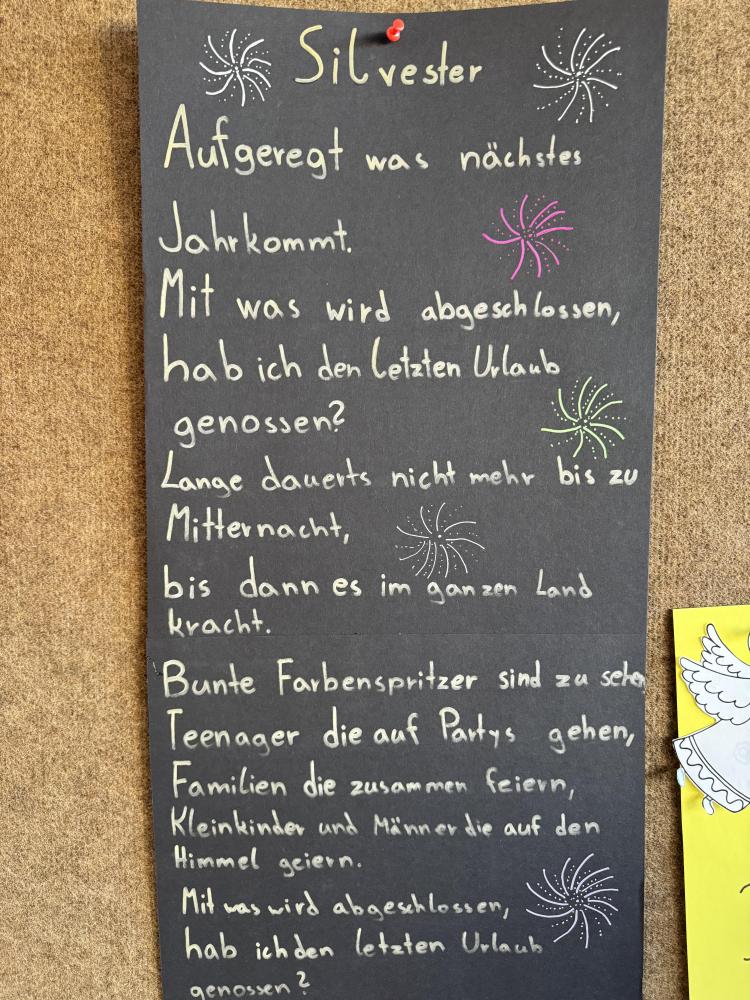 Silvester
Aufgeregt was nächstes
Jahr kommt.
Mit was wird abgeschlossen,
hab ich den letzten Urlaub
genossen?
Lange dauerts nicht mehr bis zu
Mitternacht,
bis dann es im ganzen Land
kracht.
Bunte Farbenspritzer sind zu sehen
Teenager die auf Partys gehen,
Familien die zusammen feiern,
Kleinkinder und Männer die auf den
Himmel geiern.
Mit was wird abgeschlossen,
hab ich den letzten Urlaub
genossen?